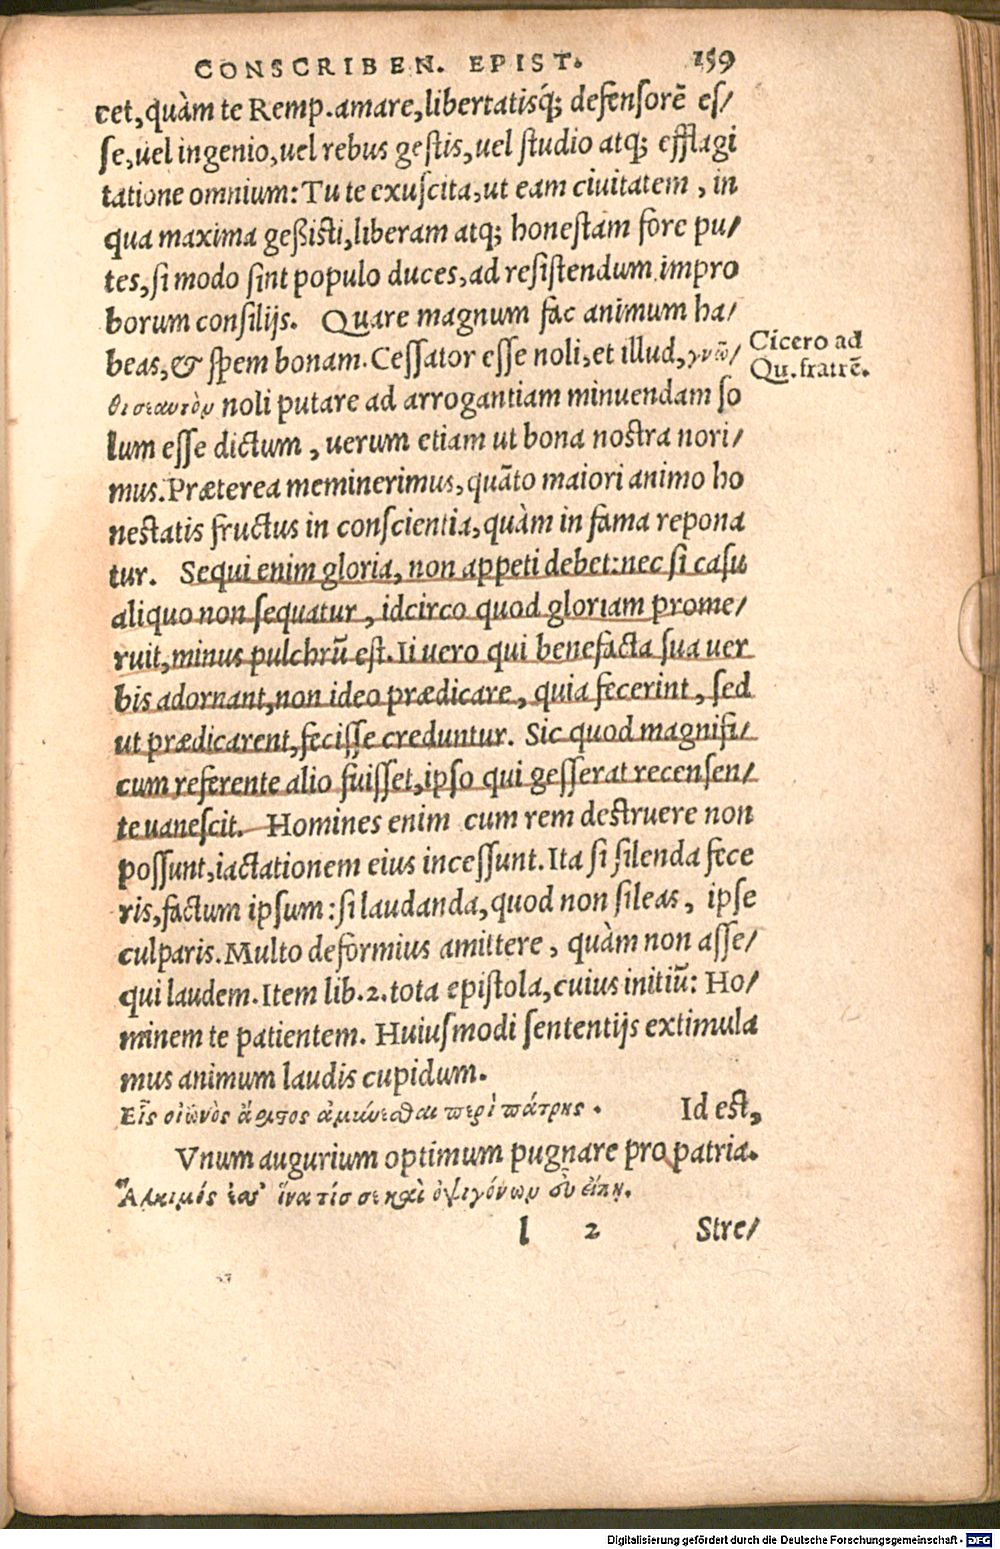 CONSCRIBEN. EPIST. 159
cet, quàm te Remp. amare, libertatisq́; defensorẽ es/
se, uel ingenio, uel rebus gestis, uel studio atq; efflagi
tatione omnium: Tu te exuscita, ut eam ciuitatem, in
qua maxima geßisti, liberam atq; honestam fore pu/
tes, si modo sint populo duces, ad resistendum impro
borum consilijs. Quare magnum fac animum ha/
beas, & spem bonam. Cessator esse noli, et illud, γνῶ/
Cicero ad
Qu. fratrẽ.
θι σεαυτὸν noli putare ad arrogantiam minuendam so
lum esse dictum, uerum etiam ut bona nostra nori/
mus. Præterea meminerimus, quãto maiori animo ho
nestatis fructus in conscientia, quàm in fama repona
tur. Sequi enim gloria, non appeti debet: nec si casu
aliquo non sequatur, idcirco quod gloriam prome/
ruit, minus pulchrũ est. Ii uero qui benefacta sua uer
bis adornant, non ideo prædicare, quia fecerint, sed
ut prædicarent, fecisse creduntur. Sic quod magnifi/
cum referente alio fuisset, ipso qui gesserat recensen/
te uanescit. Homines enim cum rem destruere non
possunt, iactationem eius incessunt. Ita si silenda fece
ris, factum ipsum: si laudanda, quod non sileas, ipse
culparis. Multo deformius amittere, quàm non asse/
qui laudem. Item lib. 2. tota epistola, cuius initiũ: Ho/
minem te patientem. Huiusmodi sententijs extimula
mus animum laudis cupidum.
Εἷς οἰωνὸς ἄριστος ἀμύνεσθαι περὶ πάτρης. Id est,
Vnum augurium optimum pugnare pro patria.
Ἄλκιμός ἐσσ' ἵνα τίς σε καὶ ὀψιγόνων εὺ εἴπῃ.
l 2 Stre/
Digitalisierung gefördert durch die Deutsche Forschungsgemeinschaft - DFG